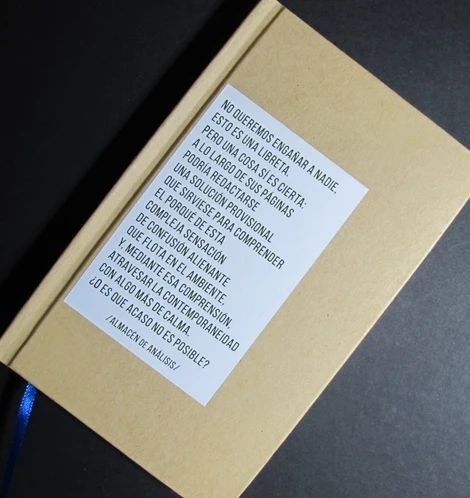 NO QUEREMOS ENGAÑAR A NADIE.
ESTO ES UNA LIBRETA.
PERO UNA COSA SÍ ES CIERTA:
A LO LARGO DE SUS PÁGINAS
PODRÍA REDACTARSE
UNA SOLUCIÓN PROVISIONAL
QUE SIRVIESE PARA COMPRENDER
EL PORQUÉ DE ESTA
COMPLEJA SENSACIÓN
DE CONFUSIÓN ALIENANTE
QUE FLOTA EN EL AMBIENTE.
Y, MEDIANTE ESA COMPRENSIÓN,
ATRAVESAR LA CONTEMPORANEIDAD
CON ALGO MÁS DE CALMA.
¿O ES QUE ACASO NO ES POSIBLE?
/ALMACÉN DE ANÁLISIS/